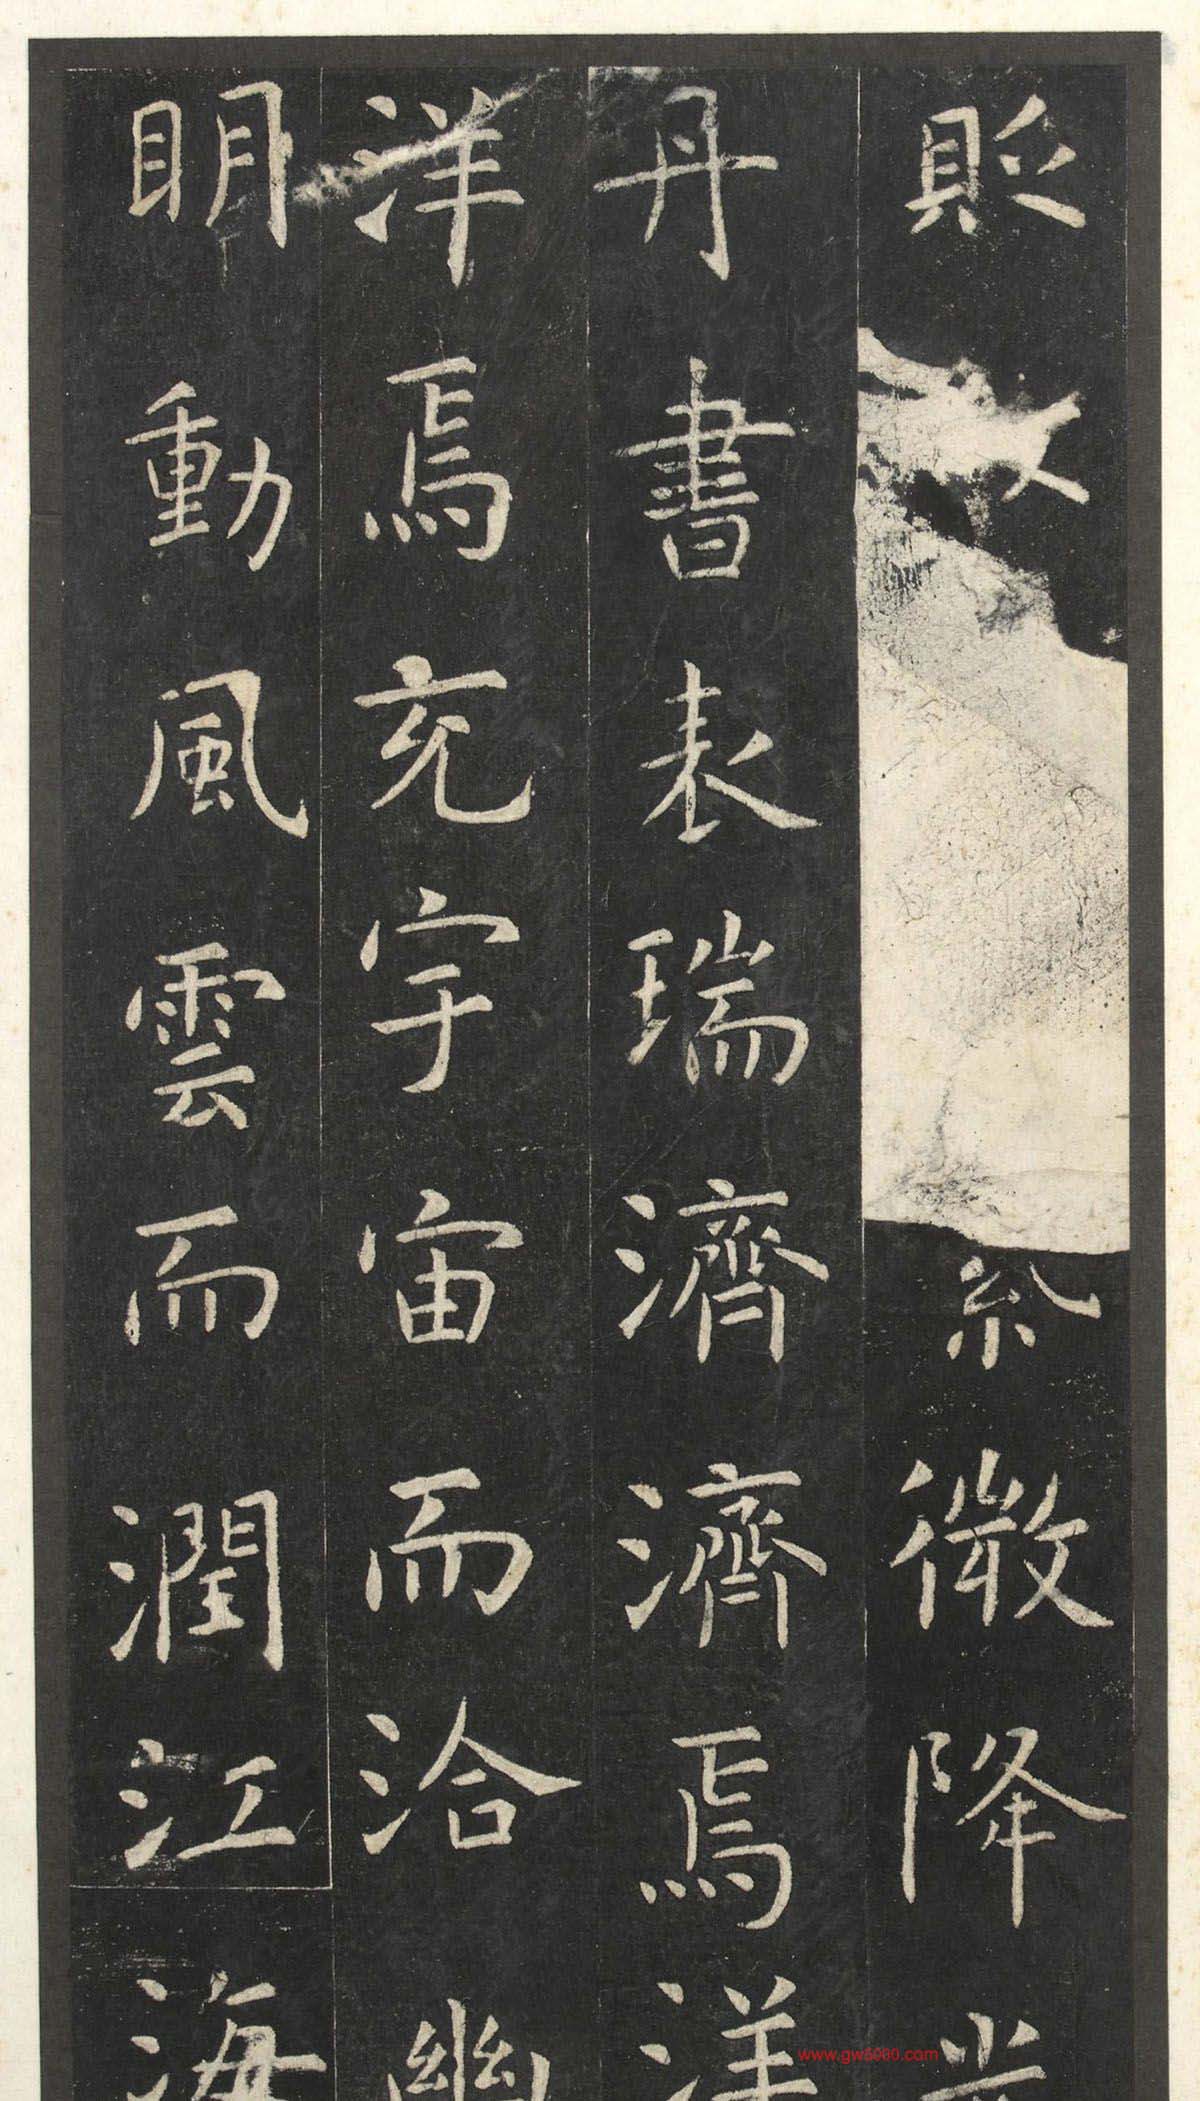 貶紫微降光
丹書表瑞濟濟焉洋
洋焉充宇宙而洽幽
明動風雲而潤江海
www.gw5000.com